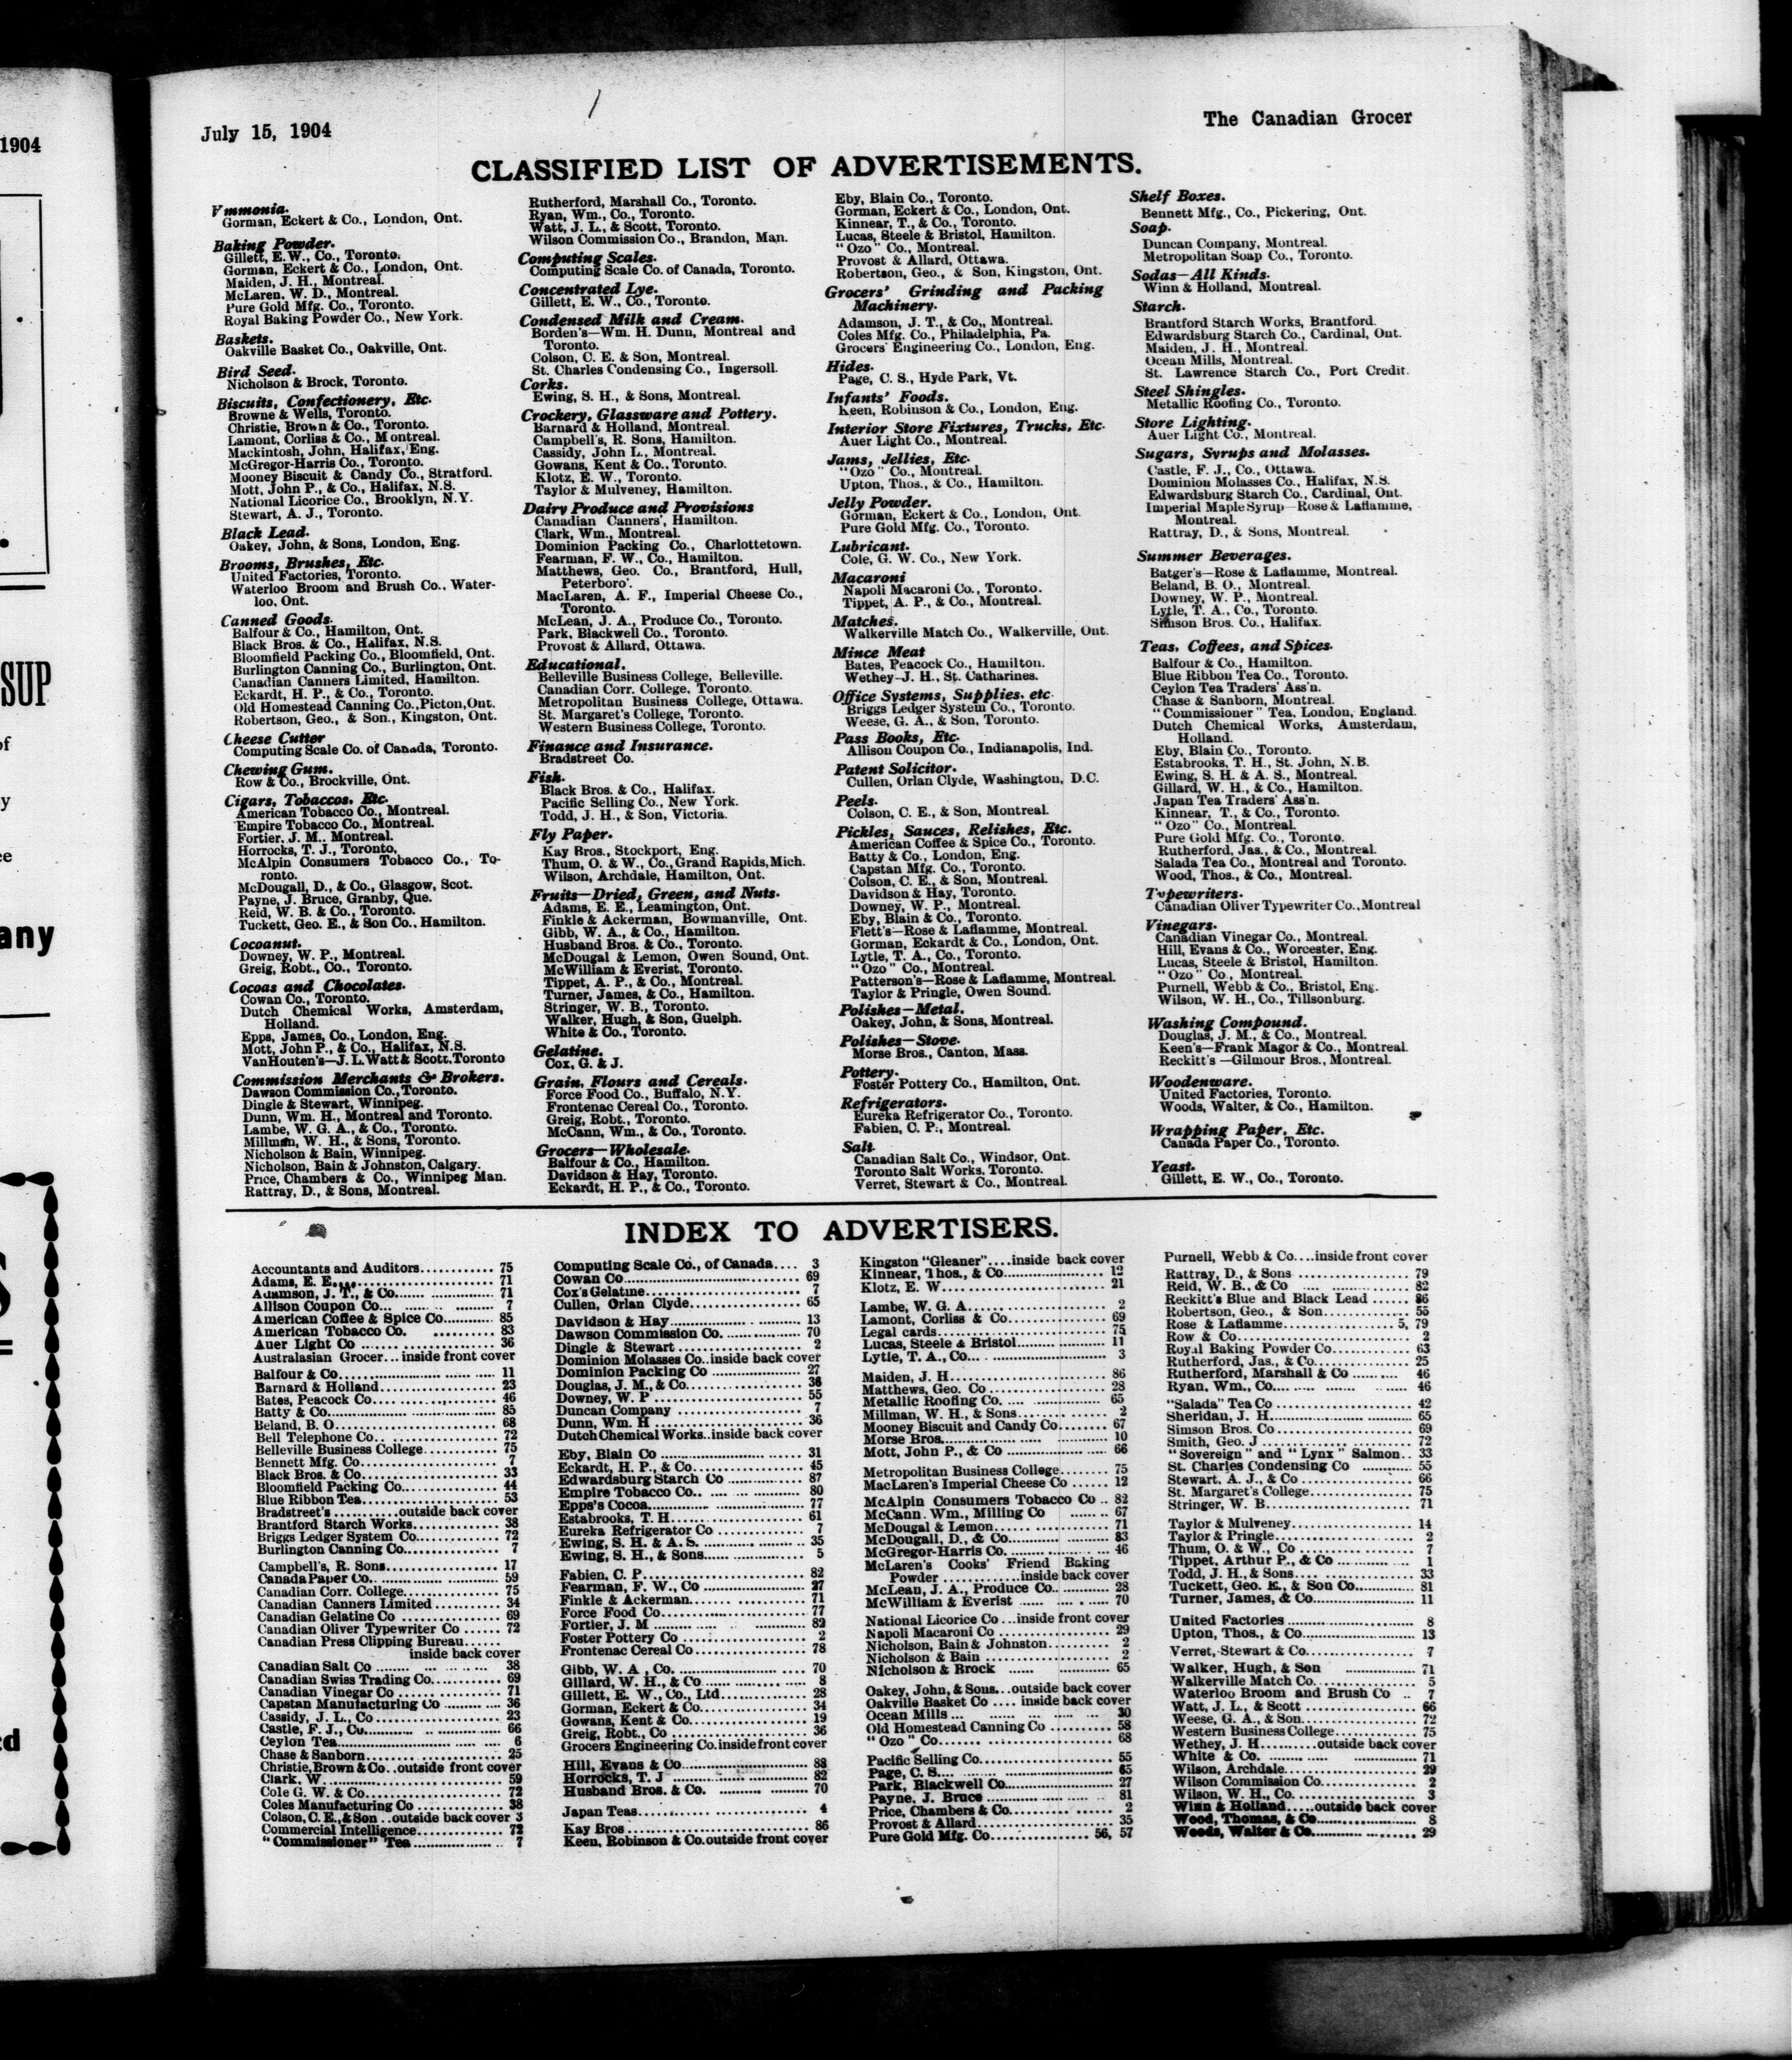 July 15, 1904
The Canadian Grocer
CLASSIFIED LIST OF ADVERTISEMENTS.
mmonia.
Gorman, Eckert & Co., London, Ont.
Baking Powder.
Gillett, E. W., Co., Toronto.
Gorman, Eckert & Co., London, Ont.
Maiden, J. H., Montreal.
McLaren, W. D., Montreal.
Pure Gold Mfg. Co., Toronto.
Royal Baking Powder Co., New York.
Baskets.
Oakville Basket Co., Oakville, Ont.
Bird Seed.
Nicholson & Brock, Toronto.
Biscuits, Confectionery, Etc.
Browne & Wells, Toronto.
Christie, Brown & Co., Toronto.
Lamont, Corliss & Co., Montreal.
Mackintosh, John, Halifax, Eng.
McGregor-Harris Co., Toronto.
Mooney Biscuit & Candy Co., Stratford.
Mott, John P., & Co., Halifax, N.S.
National Licorice Co., Brooklyn, N.Y.
Stewart, A. J., Toronto.
Black Lead.
Oakey, John, & Sons, London, Eng.
Brooms, Brushes, Etc.
United Factories, Toronto.
Waterloo Broom and Brush Co., Water-
loo, Ont.
Canned Goods.
Balfour & Co., Hamilton, Ont.
Black Bros. & Co., Halifax, N.S.
Bloomfield Packing Co., Bloomfield, Ont.
Burlington Canning Co., Burlington, Ont.
Canadian Canners Limited, Hamilton.
Eckardt, H. P., & Co., Toronto.
Old Homestead Canning Co., Picton, Ont.
Robertson, Geo., & Son., Kingston, Ont.
Cheese Cutter
Computing Scale Co. of Canada, Toronto.
Chewing Gum.
Row & Co., Brockville, Ont.
Cigars, Tobaccos, Etc.
American Tobacco Co., Montreal.
Empire Tobacco Co., Montreal.
Fortier, J. M., Montreal.
Horrocks, T. J., Toronto,
McAlpin Consumers Tobacco Co., To-
ronto.
McDougall, D., & Co., Glasgow, Scot.
Payne, J. Bruce, Granby, Que.
Reid, W. B. & Co., Toronto.
Tuckett, Geo. E., & Son Co., Hamilton.
Cocoanut.
Downey, W. P., Montreal.
Greig, Robt., Co., Toronto.
Cocoas and Chocolates.
Cowan Co., Toronto.
Dutch Chemical Works, Amsterdam,
Holland.
Epps, James, Co., London, Eng.
Mott, John P., & Co., Halifax, N.S.
VanHouten's—J. L. Watt & Scott, Toronto
Commission Merchants & Brokers.
Dawson Commission Co., Toronto.
Dingle & Stewart, Winnipeg.
Dunn, Wm. H., Montreal and Toronto.
Lambe, W. G. A., & Co., Toronto.
Millman, W. H., & Sons, Toronto.
Nicholson & Bain, Winnipeg.
Nicholson, Bain & Johnston, Calgary.
Price, Chambers & Co., Winnipeg Man.
Rattray, D., & Sons, Montreal.
Rutherford, Marshall Co., Toronto.
Ryan, Wm., Co., Toronto.
Watt, J. L., & Scott, Toronto.
Wilson Commission Co., Brandon, Man.
Computing Scales.
Computing Scale Co. of Canada, Toronto.
Concentrated Lye.
Gillett, E. W., Co., Toronto.
Condensed Milk and Cream.
Borden's—Wm. H. Dunn, Montreal and
Toronto.
Colson, C. E. & Son, Montreal.
St. Charles Condensing Co., Ingersoll.
Corks.
Ewing, S. H., & Sons, Montreal.
Crockery, Glassware and Pottery.
Barnard & Holland, Montreal.
Campbell's, R. Sons, Hamilton.
Cassidy, John L., Montreal.
Gowans, Kent & Co., Toronto.
Klotz, E. W., Toronto.
Taylor & Mulveney, Hamilton.
Dairy Produce and Provisions
Canadian Canners', Hamilton.
Clark, Wm., Montreal.
Dominion Packing Co., Charlottetown.
Fearman, F. W., Co., Hamilton.
Matthews, Geo. Co., Brantford, Hull,
Peterboro'.
MacLaren, A. F., Imperial Cheese Co.,
Toronto.
McLean, J. A., Produce Co., Toronto.
Park, Blackwell Co., Toronto.
Provost & Allard, Ottawa.
Educational.
Belleville Business College, Belleville.
Canadian Corr. College, Toronto.
Metropolitan Business College, Ottawa.
St. Margaret's College, Toronto.
Western Business College, Toronto.
Finance and Insurance.
Bradstreet Co.
Fish.
Black Bros. & Co., Halifax.
Pacific Selling Co., New York.
Todd, J. H., & Son, Victoria.
Fly Paper.
Kay Bros., Stockport, Eng.
Thum, O. & W., Co., Grand Rapids, Mich.
Wilson, Archdale, Hamilton, Ont.
Fruits—Dried, Green, and Nuts.
Adams, E. E., Leamington, Ont.
Finkle & Ackerman, Bowmanville, Ont.
Gibb, W. A., & Co., Hamilton.
Husband Bros. & Co., Toronto.
McDougal & Lemon, Owen Sound, Ont.
McWilliam & Everist, Toronto.
Tippet, A. P., & Co., Montreal.
Turner, James, & Co., Hamilton.
Stringer, W. B., Toronto.
Walker, Hugh, & Son, Guelph.
White & Co., Toronto.
Gelatine.
Cox, G. & J.
Grain, Flours and Cereals.
Force Food Co., Buffalo, N.Y.
Frontenac Cereal Co., Toronto.
Greig, Robt., Toronto.
McCann, Wm., & Co., Toronto.
Grocers—Wholesale.
Balfour & Co., Hamilton.
Davidson & Hay, Toronto.
Eckardt, H. P., & Co., Toronto.
Eby, Blain Co., Toronto.
Gorman, Eckert & Co., London, Ont.
Kinnear, T., & Co., Toronto.
Lucas, Steele & Bristol, Hamilton.
"Ozo" Co., Montreal.
Provost & Allard, Ottawa.
Robertson, Geo., & Son, Kingston, Ont.
Grocers' Grinding and Packing
Machinery.
Adamson, J. T., & Co., Montreal.
Coles Mfg. Co., Philadelphia, Pa.
Grocers' Engineering Co., London, Eng.
Hides.
Page, C. S., Hyde Park, Vt.
Infants' Foods.
Keen, Robinson & Co., London, Eng.
Interior Store Fixtures, Trucks, Etc.
Auer Light Co., Montreal.
Jams, Jellies, Etc.
"Ozo" Co., Montreal.
Upton, Thos., & Co., Hamilton.
Jelly Powder.
Gorman, Eckert & Co., London, Ont.
Pure Gold Mfg. Co., Toronto.
Lubricant.
Cole, G. W. Co., New York.
Macaroni
Napoli Macaroni Co., Toronto.
Tippet, A. P., & Co., Montreal.
Matches.
Walkerville Match Co., Walkerville, Ont.
Mince Meat
Bates, Peacock Co., Hamilton.
Wethey-J. H., St. Catharines.
Office Systems, Supplies, etc
Briggs Ledger System Co., Toronto.
Weese, G. A., & Son, Toronto.
Pass Books, Etc.
Allison Coupon Co., Indianapolis, Ind.
Patent Solicitor.
Cullen, Orlan Clyde, Washington, D.C.
Peels.
Colson, C. E., & Son, Montreal.
Pickles, Sauces, Relishes, Etc.
American Coffee & Spice Co., Toronto.
Batty & Co., London, Eng.
Capstan Mfg. Co., Toronto.
Colson, C. E., & Son, Montreal.
Davidson & Hay, Toronto.
Downey, W. P., Montreal.
Eby, Blain & Co., Toronto.
Flett's—Rose & Laflamme, Montreal.
Gorman, Eckardt & Co., London, Ont.
Lytle, T. A., Co., Toronto.
"Ozo" Co., Montreal.
Patterson's—Rose & Laflamme, Montreal.
Taylor & Pringle, Owen Sound.
Polishes—Metal.
Oakey, John, & Sons, Montreal.
Polishes—Stove.
Morse Bros., Canton, Mass.
Pottery.
Foster Pottery Co., Hamilton, Ont.
Refrigerators.
Eureka Refrigerator Co., Toronto.
Fabien, C. P., Montreal.
Salt.
Canadian Salt Co., Windsor, Ont.
Toronto Salt Works, Toronto.
Verret, Stewart & Co., Montreal.
Shelf Boxes.
Bennett Mfg., Co., Pickering, Ont.
Soap.
Duncan Company, Montreal.
Metropolitan Soap Co., Toronto.
Sodas—All Kinds.
Winn & Holland, Montreal.
Starch.
Brantford Starch Works, Brantford.
Edwardsburg Starch Co., Cardinal, Ont.
Maiden, J. H., Montreal.
Ocean Mills, Montreal.
St. Lawrence Starch Co., Port Credit.
Steel Shingles.
Metallic Roofing Co., Toronto.
Store Lighting.
Auer Light Co., Montreal.
Sugars, Syrups and Molasses.
Castle, F. J., Co., Ottawa.
Dominion Molasses Co., Halifax, N.S.
Edwardsburg Starch Co., Cardinal, Ont.
Imperial Maple Syrup—Rose & Laflamme,
Montreal.
Rattray, D., & Sons, Montreal.
Summer Beverages.
Batger's—Rose & Laflamme, Montreal.
Beland, B. O., Montreal.
Downey, W. P., Montreal.
Lytle, T. A., Co., Toronto.
Simson Bros. Co., Halifax.
Teas, Coffees, and Spices.
Balfour & Co., Hamilton.
Blue Ribbon Tea Co., Toronto.
Ceylon Tea Traders' Ass'n.
Chase & Sanborn, Montreal.
"Commissioner" Tea, London, England.
Dutch Chemical Works, Amsterdam,
Holland.
Eby, Blain Co., Toronto.
Estabrooks, T. H., St. John, N.B.
Ewing, S. H. & A. S., Montreal.
Gillard, W. H., & Co., Hamilton.
Japan Tea Traders' Ass'n.
Kinnear, T., & Co., Toronto.
"Ozo" Co., Montreal.
Pure Gold Mfg. Co., Toronto.
Rutherford, Jas., & Co., Montreal.
Salada Tea Co., Montreal and Toronto.
Wood, Thos., & Co., Montreal.
Typewriters.
Canadian Oliver Typewriter Co., Montreal
Vinegars.
Canadian Vinegar Co., Montreal.
Hill, Evans & Co., Worcester, Eng.
Lucas, Steele & Bristol, Hamilton.
"Ozo" Co., Montreal.
Purnell, Webb & Co., Bristol, Eng.
Wilson, W. H., Co., Tillsonburg.
Washing Compound.
Douglas, J. M., & Co., Montreal.
Keen's—Frank Magor & Co., Montreal.
Reckitt's—Gilmour Bros., Montreal.
Woodenware.
United Factories, Toronto.
Woods, Walter, & Co., Hamilton.
Wrapping Paper, Etc.
Canada Paper Co., Toronto.
Yeast.
Gillett, E. W., Co., Toronto.
INDEX TO ADVERTISERS.
Accountants and Auditors 75
Adams, E. E. 71
Adamson, J. T., & Co. 71
Allison Coupon Co. 7
American Coffee & Spice Co. 85
American Tobacco Co. 83
Auer Light Co 36
Australasian Grocer...inside front cover
Balfour & Co. 11
Barnard & Holland 23
Bates, Peacock Co. 46
Batty & Co. 85
Beland, B. O. 68
Bell Telephone Co. 72
Belleville Business College 75
Bennett Mfg. Co. 7
Black Bros. & Co. 33
Bloomfield Packing Co. 44
Blue Ribbon Tea 53
Bradstreet's outside back cover
Brantford Starch Works 38
Briggs Ledger System Co. 72
Burlington Canning Co. 7
Campbell's, R. Sons 17
Canada Paper Co. 59
Canadian Corr. College 75
Canadian Canners Limited 34
Canadian Gelatine Co 69
Canadian Oliver Typewriter Co 72
Canadian Press Clipping Bureau
inside back cover
Canadian Salt Co 38
Canadian Swiss Trading Co. 69
Canadian Vinegar Co 71
Capstan Manufacturing Co 36
Cassidy, J. L., Co 23
Castle, F. J., Co. 66
Ceylon Tea 6
Chase & Sanborn 25
Christie, Brown & Co..outside front cover
Clark, W. 59
Cole G. W. & Co. 72
Coles Manufacturing Co 38
Colson, C. E., & Son ..outside back cover 3
Commercial Intelligence 72
"Commissioner" Tea 7
Computing Scale Co., of Canada 3
Cowan Co. 69
Cox's Gelatine 7
Cullen, Orlan Clyde 65
Davidson & Hay 13
Dawson Commission Co. 70
Dingle & Stewart 2
Dominion Molasses Co..inside back cover
Dominion Packing Co 27
Douglas, J. M., & Co. 38
Downey, W. P 55
Duncan Company 7
Dunn, Wm. H 36
Dutch Chemical Works..inside back cover
Eby, Blain Co 31
Eckardt, H. P., & Co. 45
Edwardsburg Starch Co 87
Empire Tobacco Co. 80
Epps's Cocoa 77
Estabrooks, T. H. 61
Eureka Refrigerator Co 7
Ewing, S. H. & A. S. 35
Ewing, S. H., & Sons 5
Fabien, C. P. 82
Fearman, F. W., Co 27
Finkle & Ackerman 71
Force Food Co. 77
Fortier, J. M 82
Foster Pottery Co 2
Frontenac Cereal Co 78
Gibb, W. A , Co. 70
Gillard, W. H., & Co 8
Gillett, E. W., Co., Ltd. 28
Gorman, Eckert & Co. 34
Gowans, Kent & Co. 19
Greig, Robt., Co 36
Grocers Engineering Co.inside front cover
Hill, Evans & Co 88
Horrocks, T. J 82
Husband Bros. & Co. 70
Japan Teas 4
Kay Bros 86
Keen, Robinson & Co.outside front cover
Kingston "Gleaner"....inside back cover
Kinnear, Thos., & Co. 12
Klotz, E. W. 21
Lambe, W. G. A. 2
Lamont, Corliss & Co. 69
Legal cards 75
Lucas, Steele & Bristol 11
Lytle, T. A., Co. 3
Maiden, J. H. 86
Matthews, Geo. Co 28
Metallic Roofing Co. 65
Millman, W. H., & Sons 2
Mooney Biscuit and Candy Co. 67
Morse Bros. 10
Mott, John P., & Co 66
Metropolitan Business College 75
MacLaren's Imperial Cheese Co 12
McAlpin Consumers Tobacco Co 82
McCann, Wm., Milling Co 67
McDougal & Lemon 71
McDougall, D., & Co. 83
McGregor-Harris Co. 46
McLaren's Cooks' Friend Baking
Powder inside back cover
McLean, J. A., Produce Co. 28
McWilliam & Everist 70
National Licorice Co...inside front cover
Napoli Macaroni Co 29
Nicholson, Bain & Johnston 2
Nicholson & Bain 2
Nicholson & Brock 65
Oakey, John, & Sons...outside back cover
Oakville Basket Co .... inside back cover
Ocean Mills 30
Old Homestead Canning Co 58
"Ozo" Co. 68
Pacific Selling Co. 55
Page, C. S. 65
Park, Blackwell Co. 27
Payne, J. Bruce 81
Price, Chambers & Co. 2
Provost & Allard 35
Pure Gold Mfg. Co. 56, 57
Purnell, Webb & Co....inside front cover
Rattray, D., & Sons 79
Reid, W. B., & Co 82
Reckitt's Blue and Black Lead 86
Robertson, Geo., & Son 55
Rose & Laflamme 5, 79
Row & Co. 2
Royal Baking Powder Co. 63
Rutherford, Jas., & Co. 25
Rutherford, Marshall & Co 46
Ryan, Wm., Co. 46
"Salada" Tea Co 42
Sheridan, J. H. 65
Simson Bros. Co 69
Smith, Geo. J 72
"Sovereign" and "Lynx" Salmon.. 33
St. Charles Condensing Co 55
Stewart, A. J., & Co 66
St. Margaret's College 75
Stringer, W. B. 71
Taylor & Mulveney 14
Taylor & Pringle 2
Thum, O. & W., Co 7
Tippet, Arthur P., & Co 1
Todd, J. H., & Sons 33
Tuckett, Geo. E., & Son Co. 81
Turner, James, & Co. 11
United Factories 8
Upton, Thos., & Co. 13
Verret, Stewart & Co. 7
Walker, Hugh, & Son 71
Walkerville Match Co. 5
Waterloo Broom and Brush Co .. 7
Watt, J. L., & Scott 66
Weese, G. A., & Son 72
Western Business College 75
Wethey, J. H.........outside back cover
White & Co. 71
Wilson, Archdale 29
Wilson Commission Co. 2
Wilson, W. H., Co. 3
Winn & Holland.....outside back cover
Wood, Thomas, & Co 8
Woods, Walter & Co. 29
1904
SUP
of
y
any